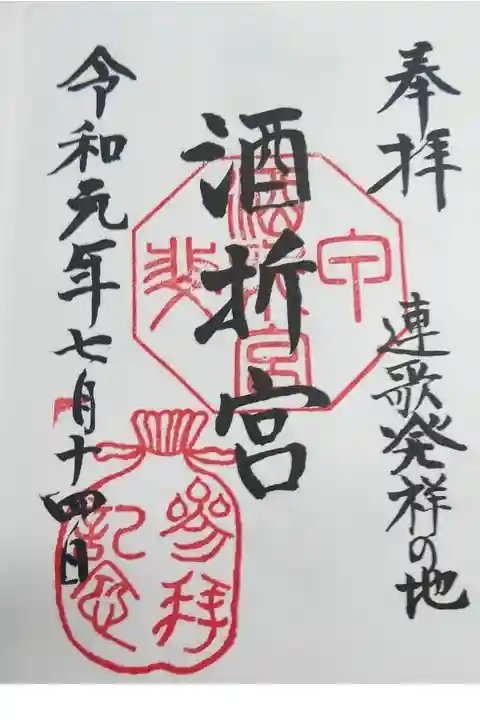 奉拝
連歌発祥の地
酒折宮
令和元年七月十四日
甲斐
酒折宮
參拜
記念